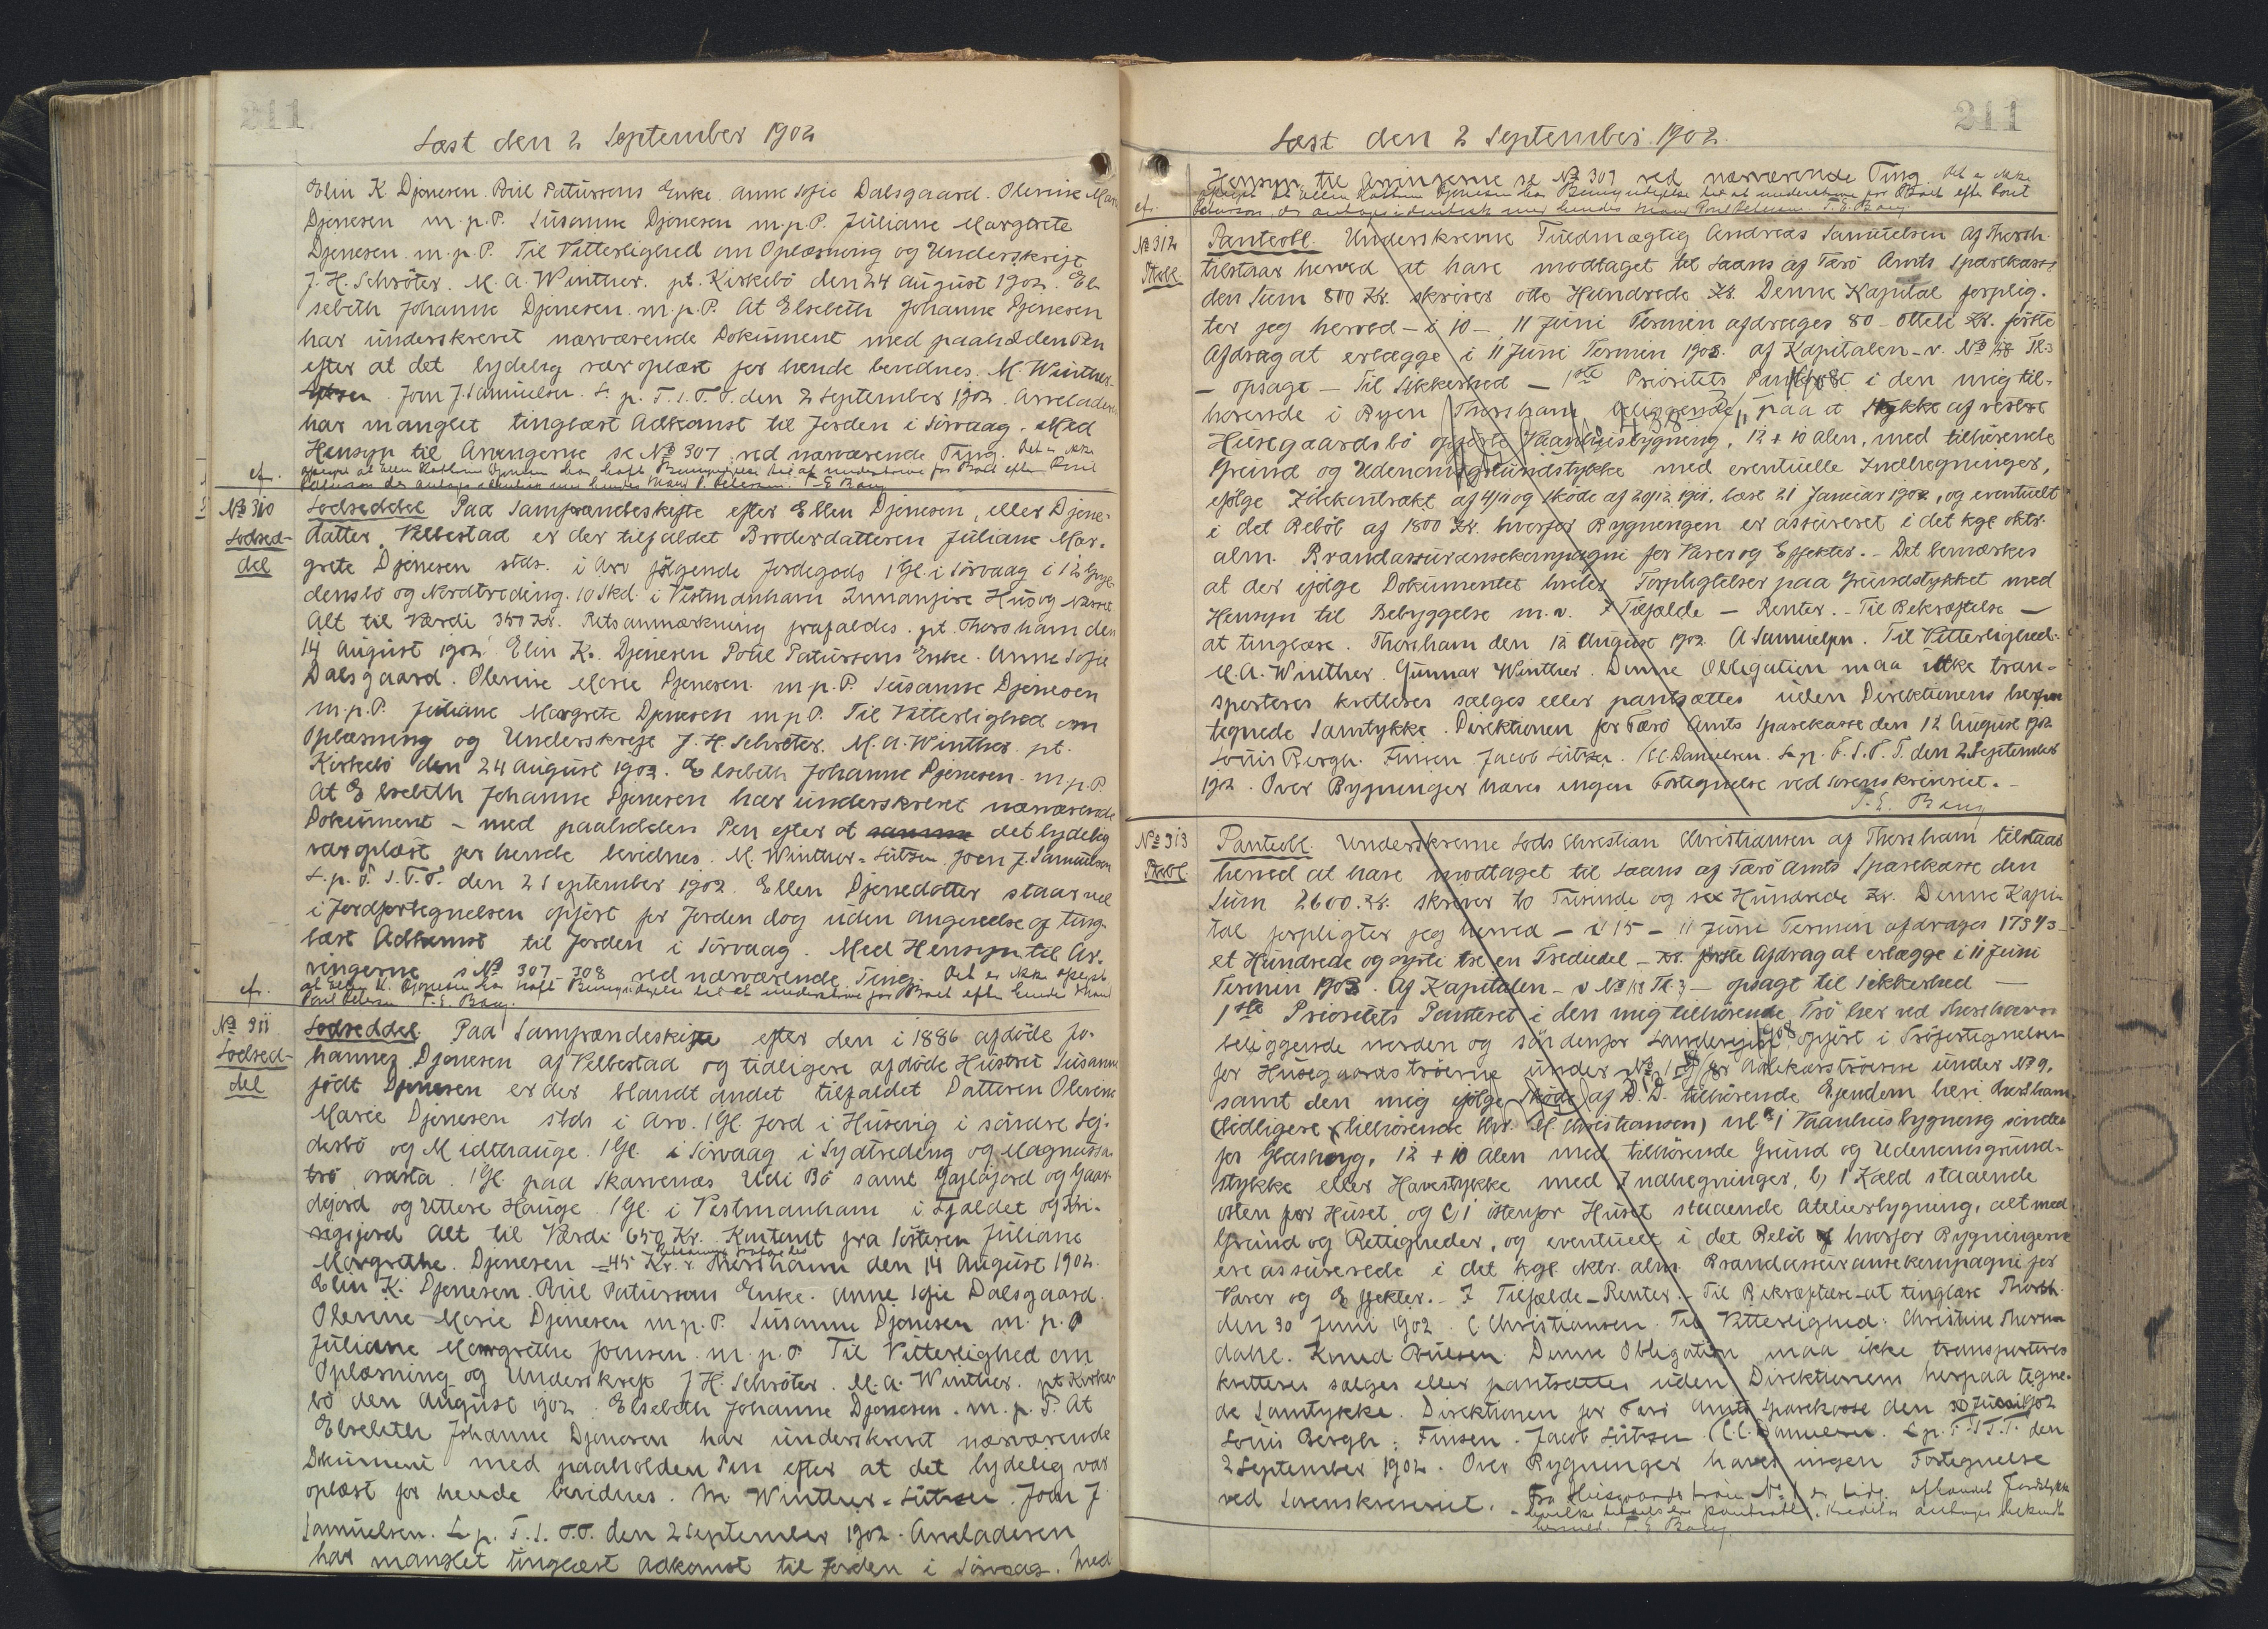 211
Læst den 2 September 1902
Elin K Djonesen. Poul Paturssons Enke. Anne Sofie Dalsgaard. Olevine Marie
Djonesen m.p.P. Susanne Djonesen m.p.P. Juliane Margrete
Djonesen m.p.P. Til Vitterlighed om Oplæsning og Underskrift
J. H. Schröter. M. A. Winther. pt. Kirkebö den 24 August 1902. El-
sebeth Johanne Djonesen m.p.P. At Elsebeth Johanne Djonesen
har underskrevet nærværende Dokument med paaholden Pen
efter at det lydelig var oplæst for hende bevidnes. M. Winther-
Lützen. Joen J. Samuelsen. L. p. F. S. T. T. den 2 September 1902. Arveladeren
har manglet tinglæst Adkomst til Jorden i Sörvaag. Med
Hensyn til Arvingerne se No 307 ved nærværende Ting. Det er ikke
cfr.
No 310
Lodsed-
del
Lodseddel. Paa Samfrændeskifte efter Ellen Djonesen, eller Djone-
datter Velbestad er der tilfaldet Broderdatteren Juliane Mar-
grete Djonesen stds. i Arv fölgende Jordegods 1 Gl. i Sörvaag i
densbö og Nordtreding. 10 Skd. i Vestmanhavn Innanfire Hus og
Alt til Værdi 350 Kr. Retsanmærkning frafaldes. pt. Thorshavn den
14 August 1902. Elin K. Djonesen Poul Paturssons Enke. Anne Sofie
Dalsgaard. Olevine Marie Djonesen m.p.P. Susanne Djonesen
m.p.P. Juliane Margrete Djonesen m.p.P. Til Vitterlighed om
Oplæsning og Underskrift J. H. Schröter. M. A. Winther. pt.
Kirkebö den 24 August 1902. Elsebeth Johanne Djonesen. m.p.P.
At Elsebeth Johanne Djonesen har underskrevet nærværende
Dokument - med paaholden Pen efter at samme det lydelig
var oplæst for hende bevidnes. M. Winther-Lützen. Joen J. Samuelsen
L. p. F. S. T. T. den 2 September 1902. Ellen Djonedatter staar vel
i Jordfortegnelsen opfört for Jorden dog uden Angivelse af ting-
læst Adkomst til Jorden i Sörvaag. Med Hensyn til Ar-
vingerne s No 307-308 ved nærværende Ting. Det er ikke oplyst
cfr.
No 311
Lodsed-
del
Lodseddel. Paa Samfrændeskifte efter den i 1886 afdöde Jo-
hannes Djonesen af Velbestad og tidligere afdöde Hustru Susanne
födt Djonesen er der blandt andet tilfaldet Datteren Olevine
Marie Djonesen stds i Arv. 1 Gl. Jord i Husevig i söndre Lej-
desbö og Midthauge. 1 Gl. i Sörvaag i Sydtreding og Magnussa-
trö, 1 Gl. paa Skarvenæs Udi Bö samt Gaar-
dejord og Uttere Hauge. 1 Gl. i Vestmanhavn i Fjaldet og
jord Alt til Værdi 650 Kr. Kontant fra Sösteren Juliane
Margrethe. Djonesen 45 Kr. Thorshavn den 14 August 1902.
Elin K. Djonesen. Poul Paturssons Enke. Anne Sofie Dalsgaard.
Olevine Marie Djonesen m.p.P. Susanne Djonesen m.p.P
Juliane Margrethe Joensen. m.p.P. Til Vitterlighed om
Oplæsning og Underskrift J. H. Schröter. M. A. Winther. pt Kirke-
bö den August 1902. Elsebeth Johanne Djonesen. m.p.P. At
Elsebeth Johanne Djonesen har underskrevet nærværende
Dkument med paaholden Pen efter at det lydelig var
oplæst for hende bevidnes. M. Winther-Lützen. Joen J.
Samuelsen. L p. F. S. T.T. den 2 September 1902. Arveladeren
har manglet tinglæst Adkomst til Jorden i Sörvaag. Med
211
Læst den 2 September 1902.
Hensyn til Arvingerne se No 307 ved nærværende Ting. Det er ikke
cfr.
No 312
Ptobl.
Panteobl. Underskrevne Fuldmægtig Andreas Samuelsen af Thorsh.
tilstaar herved at have modtaget til Laans af Færö Amts Sparekasse
den Sum 800 Kr. skriver otte Hundrede Kr. Denne Kapital forplig-
ter jeg herved - i 10 - 11 Juni Termin afdrages 80 - Otteti Kr. förste
Afdrag at erlægge i 11 Juni Termin 1903. af Kapitalen - v. No
- opsagt - Til Sikkerhed - 1ste Prioritets Panteret i den mig til-
hörende i Byen Thorshavn beliggende, paa et Stykke af vestre
Husegaardsbö opförte Vaanhusbygning, 12 + 10 Alen, med tilhörende
Grund og Udenomsgrundstykke med eventuelle Indhegninger,
ifölge Köbekontrakt af og Sköde af læst 21 Januar 1902, og eventuelt
i det Belöb af 1800 Kr. hvorfor Bygningen er assureret i det kgl oktr.
alm. Brandassurancekompagni for Varer og Effekter. - Det bemærkes
at der ifölge Dokumentet hviler Forpligtelser paa Grundstykket med
Hensyn til Bebyggelse m.v. I Tilfælde - Renter. - Til Bekræftelse -
at tinglæse. Thorshavn den 12 August 1902. A Samuelsen. Til Vitterlighed:
M. A. Winther. Gunnar Winther. Denne Obligation maa ikke tran-
sporteres kvitteres sælges eller pantsættes uden Direktionens herpaa
tegnede Samtykke. Direktionen for Færö Amts Sparekasse den 12 August 1902
Louis Bergh. Finsen Jacob Lützen. C.C. Danielsen. L. p. F. S. T. T. den 2 September
1902. Over Bygninger haves ingen Fortegnelse ved Sorenskriveriet. -
T. E. Bang
No 313
Ptobl
Panteobl. Underskrevne Lods Christian Christiansen af Thorshavn tilstaar
herved at have modtaget til Laans af Færö Amts Sparekasse den
Sum 2600 Kr. skriver to Tusinde og sex Hundrede Kr. Denne Kapi-
tal forpligter jeg herved - i 15 - 11 Juni Termin afdrages 173 1/3 -
et Hundrede og syvti tre en Trediedel - Kr. förste Afdrag at erlægge i 11 Juni
Termin 1903. Af Kapitalen - v No - opsagt til Sikkerhed -
1ste Prioritets Panteret i den mig tilhörende Trö her ved Thorshavn
beliggende norden og söndenfor Landevejen opfört i Tröfortegnelsen
for Husegaards tröerne under No under No 9.
samt den mig ifölge Sköde af D. D. tilhörende Ejendom heri Thorshavn.
(tidligere tilhörende Chr. M. Christiansen) nl a) 1 Vaanhusbygning sönden
for Glasborg, 12 + 10 Alen med tilhörende Grund og Udenomsgrund-
stykke eller Havestykke med Indhegninger, b) 1 Kjæld staaende
östen for Huset og c) 1 östenfor Huset staaende Atelierbygning, alt med
Grund og Rettigheder, og eventuelt i det Belöb af hvorfor Bygningerne
ere assurerede i det kgl. oktr. alm. Brandassurancekompagni for
Varer og Effekter. - I Tilfælde - Renter. - Til Bekræftelse - at tinglæse Thorsh.
den 30 Juni 1902. C Christiansen. Til Vitterlighed: Christine Thorn-
dahl. Knud Poulsen. Denne Obligation maa ikke transporteres
kvitteres sælges eller pantsættes uden Direktionens herpaa tegne-
de Samtykke. Direktionen for Færö Amts Sparekasse den 30 Juni 1902
Louis Bergh. Finsen. Jacob Lützen C.C. Danielsen. L p. F. S T. T. den
2 September 1902. Over Bygninger haves ingen Fortegnelse
ved Sorenskriveriet.
T. E. Bang